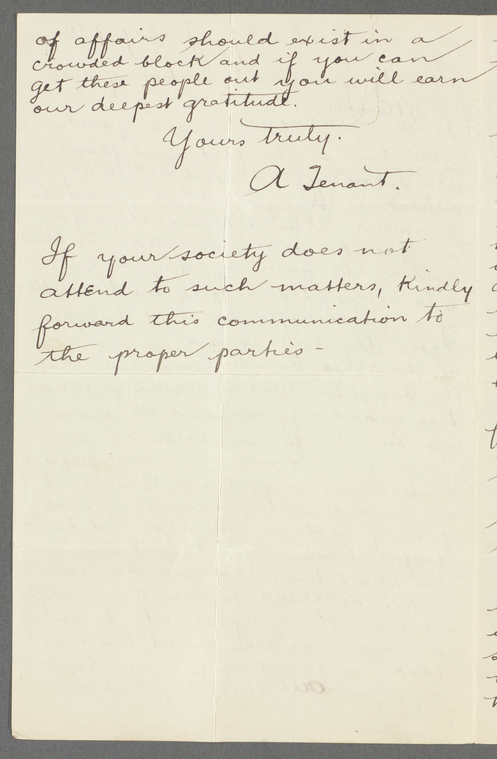 of affairs should exist in a
crowded block and if you can
get these people out you will earn
our deepest gratitude.
Yours truly.
A Tenant.
If your society does not
attend to such matters, Kindly
forward this communication to
the proper parties -